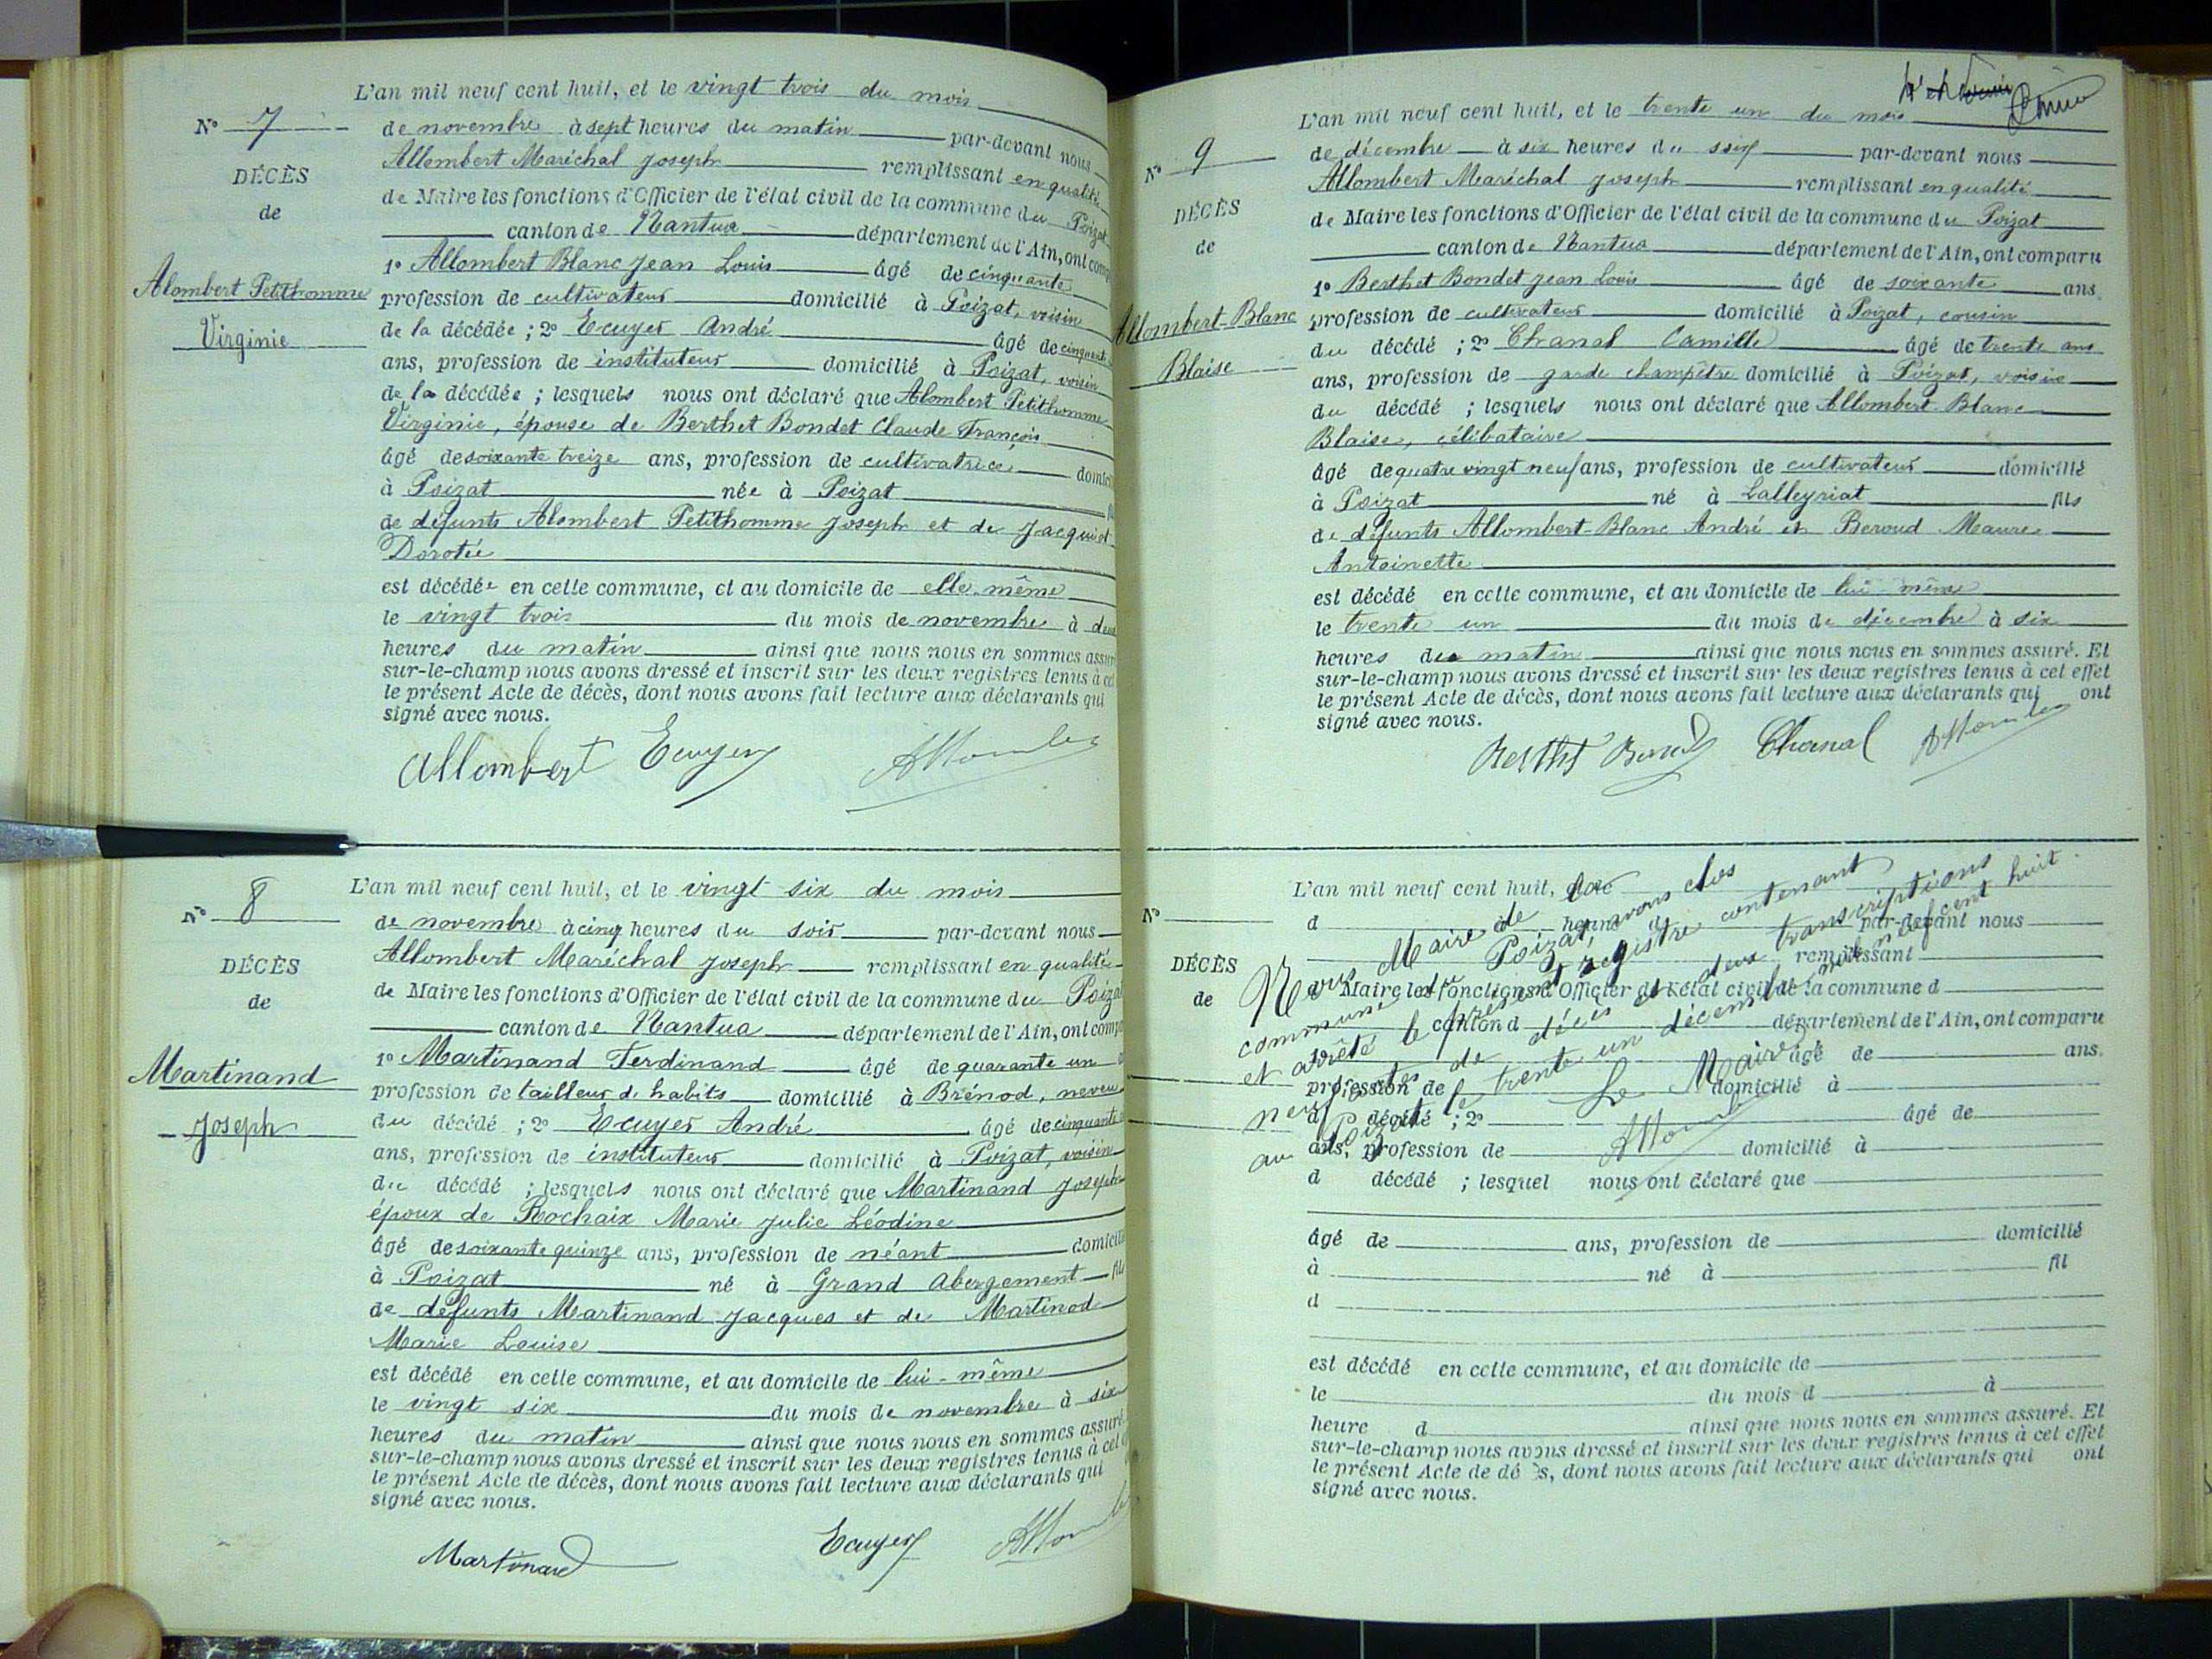 L'an mil neuf cent huit, et le vingt trois du mois
N° 7
de novembre à sept heures du matin par-devant nous
DÉCÈS
de
Allombert Maréchal Joseph remplissant en qualité
de Maire les fonctions d'Officier de l'état civil de la commune du Poizat
canton de Nantua département de l'Ain, ont comp
Alombert Petithomme
Virginie
1° Allombert Blanc Jean Louis âgé de cinquante
profession de cultivateur domicilié à Poizat, voisin
de la décédée ; 2° Ecuyer André âgé de cinquante
ans, profession de instituteur domicilié à Poizat, voisin
de la décédée ; lesquels nous ont déclaré que Alombert Petithomme
Virginie, épouse de Berthet Bondet Claude François
âgé de soixante treize ans, profession de cultivatrice, domici
à Poizat née à Poizat
de défunts Alombert Petithomme Joseph et de Jacquiot
Dorotée
est décédée en cette commune, et au domicile de elle même
le vingt trois du mois de novembre à deux
heures du matin ainsi que nous nous en sommes assur
sur-le-champ nous avons dressé et inscrit sur les deux registres tenus à cet
le présent Acte de décès, dont nous avons fait lecture aux déclarants qui
signé avec nous.
Allombert Ecuyer
L'an mil neuf cent huit, et le vingt six du mois
N° 8
de novembre à cinq heures du soir par-devant nous
DÉCÈS
de
Allombert Maréchal Joseph remplissant en qualité
de Maire les fonctions d'Officier de l'état civil de la commune du Poizat
canton de Nantua département de l'Ain, ont comp
Martinand
Joseph
1° Martinand Ferdinand âgé de quarante un
profession de tailleur d'habits domicilié à Brénod, neveu
du décédé ; 2° Ecuyer André âgé de cinquante
ans, profession de instituteur domicilié à Poizat, voisin
du décédé ; lesquels nous ont déclaré que Martinand Joseph
époux de Rochaix Marie Julie Léodine
âgé de soixante quinze ans, profession de néant domicilié
à Poizat né à Grand Abergement fils
de défunts Martinand Jacques et de Martinod
Marie Louise
est décédé en cette commune, et au domicile de lui-même
le vingt six du mois de novembre à six
heures du matin ainsi que nous nous en sommes assuré.
sur-le-champ nous avons dressé et inscrit sur les deux registres tenus à cet
le présent Acte de décès, dont nous avons fait lecture aux déclarants qui
signé avec nous.
Martinand Ecuyer
L'an mil neuf cent huit, et le trente un du mois
N° 9
de décembre à six heures du soir par-devant nous
DÉCÈS
de
Allombert Maréchal Joseph remplissant en qualité
de Maire les fonctions d'Officier de l'état civil de la commune du Poizat
canton de Nantua département de l'Ain, ont comparu
Allombert-Blanc
Blaise
1° Berthet Bondet Jean Louis âgé de soixante ans.
profession de cultivateur domicilié à Poizat, cousin
du décédé ; 2° Chanal Camille âgé de trente ans
ans, profession de garde champêtre domicilié à Poizat, voisin
du décédé ; lesquels nous ont déclaré que Allombert-Blanc
Blaise, célibataire
âgé de quatre vingt neuf ans, profession de cultivateur domicilié
à Poizat né à Lalleyriat fils
de défunts Allombert-Blanc André et Beroud Maure
Antoinette
est décédé en cette commune, et au domicile de lui même
le trente un du mois de décembre à six
heures du matin ainsi que nous nous en sommes assuré. Et
sur-le-champ nous avons dressé et inscrit sur les deux registres tenus à cet effet
le présent Acte de décès, dont nous avons fait lecture aux déclarants qui ont
signé avec nous.
Chanal
L'an mil neuf cent huit,
N°
d heure par-devant nous
DÉCÈS
de
remplissant
de Maire les fonctions d'Officier de l'état civil de la commune d
canton d département de l'Ain, ont comparu
âgé de ans.
profession de domicilié à
d décédé ; 2° âgé de
ans, profession de domicilié à
d décédé ; lesquel nous ont déclaré que
âgé de ans, profession de domicilié
à né à fil
d
est décédé en cette commune, et au domicile de
le du mois d à
heure d ainsi que nous nous en sommes assuré. Et
sur-le-champ nous avons dressé et inscrit sur les deux registres tenus à cet effet
le présent Acte de décès, dont nous avons fait lecture aux déclarants qui ont
signé avec nous.
Nous Maire de la
commune du Poizat, avons clos
et arrêté le présent registre contenant
neuf actes de décès et deux transcriptions
au Poizat le trente un décembre mil neuf cent huit.
Le Maire